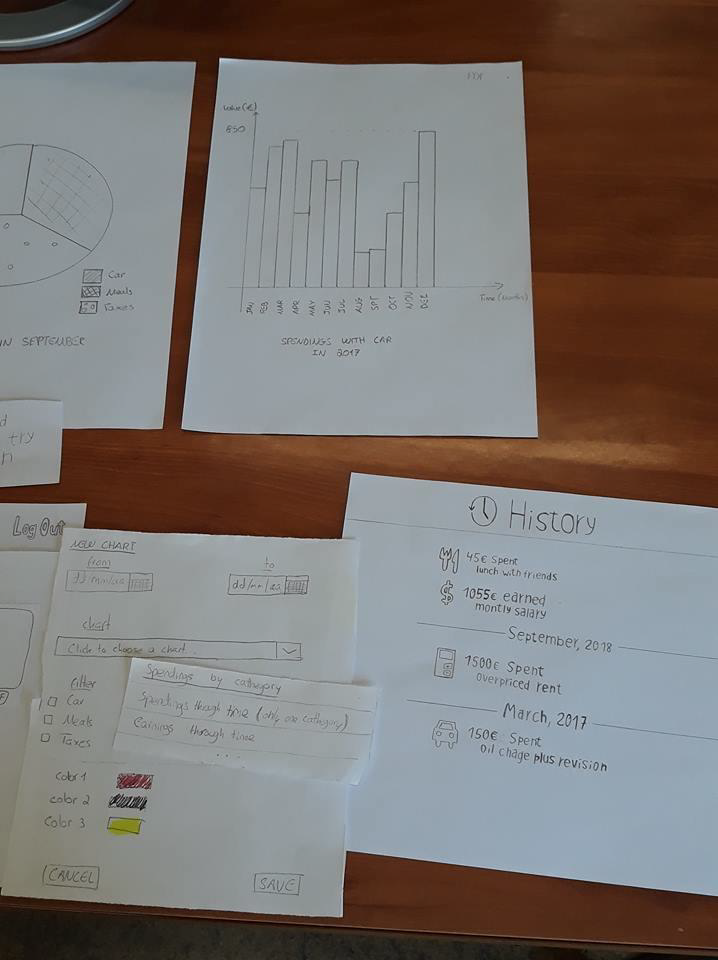 Car
Meals
Taxes
IN SEPTEMBER
Value (€)
850
JAN
FEB
MAR
APR
MAY
JUN
JUL
AUG
SPT
OCT
NOV
DEZ
Time (Months)
SPENDINGS WITH CAR
IN 2017
d
try
n
Log Out
NEW CHART
from
to
dd/mm/aa
dd/mm/aa
chart
Click to choose a chart...
filter
Car
Meals
Taxes
Spendings by cathegory
Spendings through time (only one cathegory)
Earnings through time
...
Color 1
Color 2
Color 3
CANCEL
SAVE
History
45€ Spent
lunch with friends
$
1055€ earned
montly salary
September, 2018
1500€ Spent
overpriced rent
March, 2017
150€ Spent
oil chage plus revision